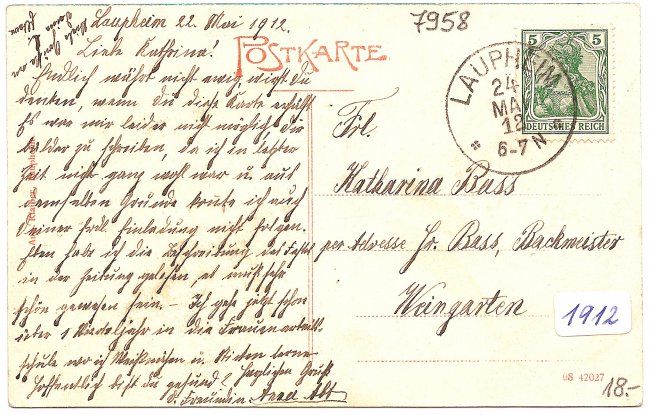 Laupheim 22. Mai 1912.
7958
Liebe Katharina!
POSTKARTE
Endlich währt nicht ewig wirst du
denken, wenn du diese Karte erhälst
Es war mir leider nicht möglich dir
balder zu schreiben, da ich in letzter
Zeit nicht ganz wohl war u. aus
demselben Grunde konnte ich auch
deiner frdl. Einladung nicht folgen.
Eben habe ich die Beschreibung des Festes
in der Zeitung gelesen, es muß sehr
schön gewesen sein. – Ich gehe jetzt schon
über 1 Vierteljahr in die Frauenarbeits-
schule wo ich Weißnähen u. Sticken lerne
Hoffentlich bist du gesund? Herzlichen Gruß
d. Freundin Anna Alt
LAUPHEIM
24
MAI
12
6-7 N
5 5
DEUTSCHES REICH
Frl.
Katharina Bass
per Adresse Hr. Bass, Backmeister
Weingarten
1912
08 42027
18.-